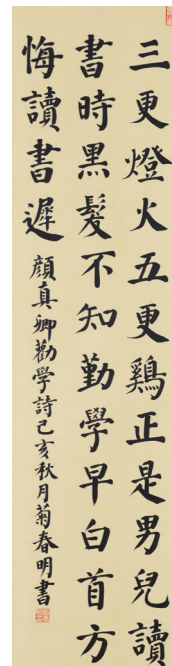 三更燈火五更鷄正是男兒讀
書時黑髮不知勤學早白首方
悔讀書遲
顔真卿勸學詩己亥秋月菊春明書